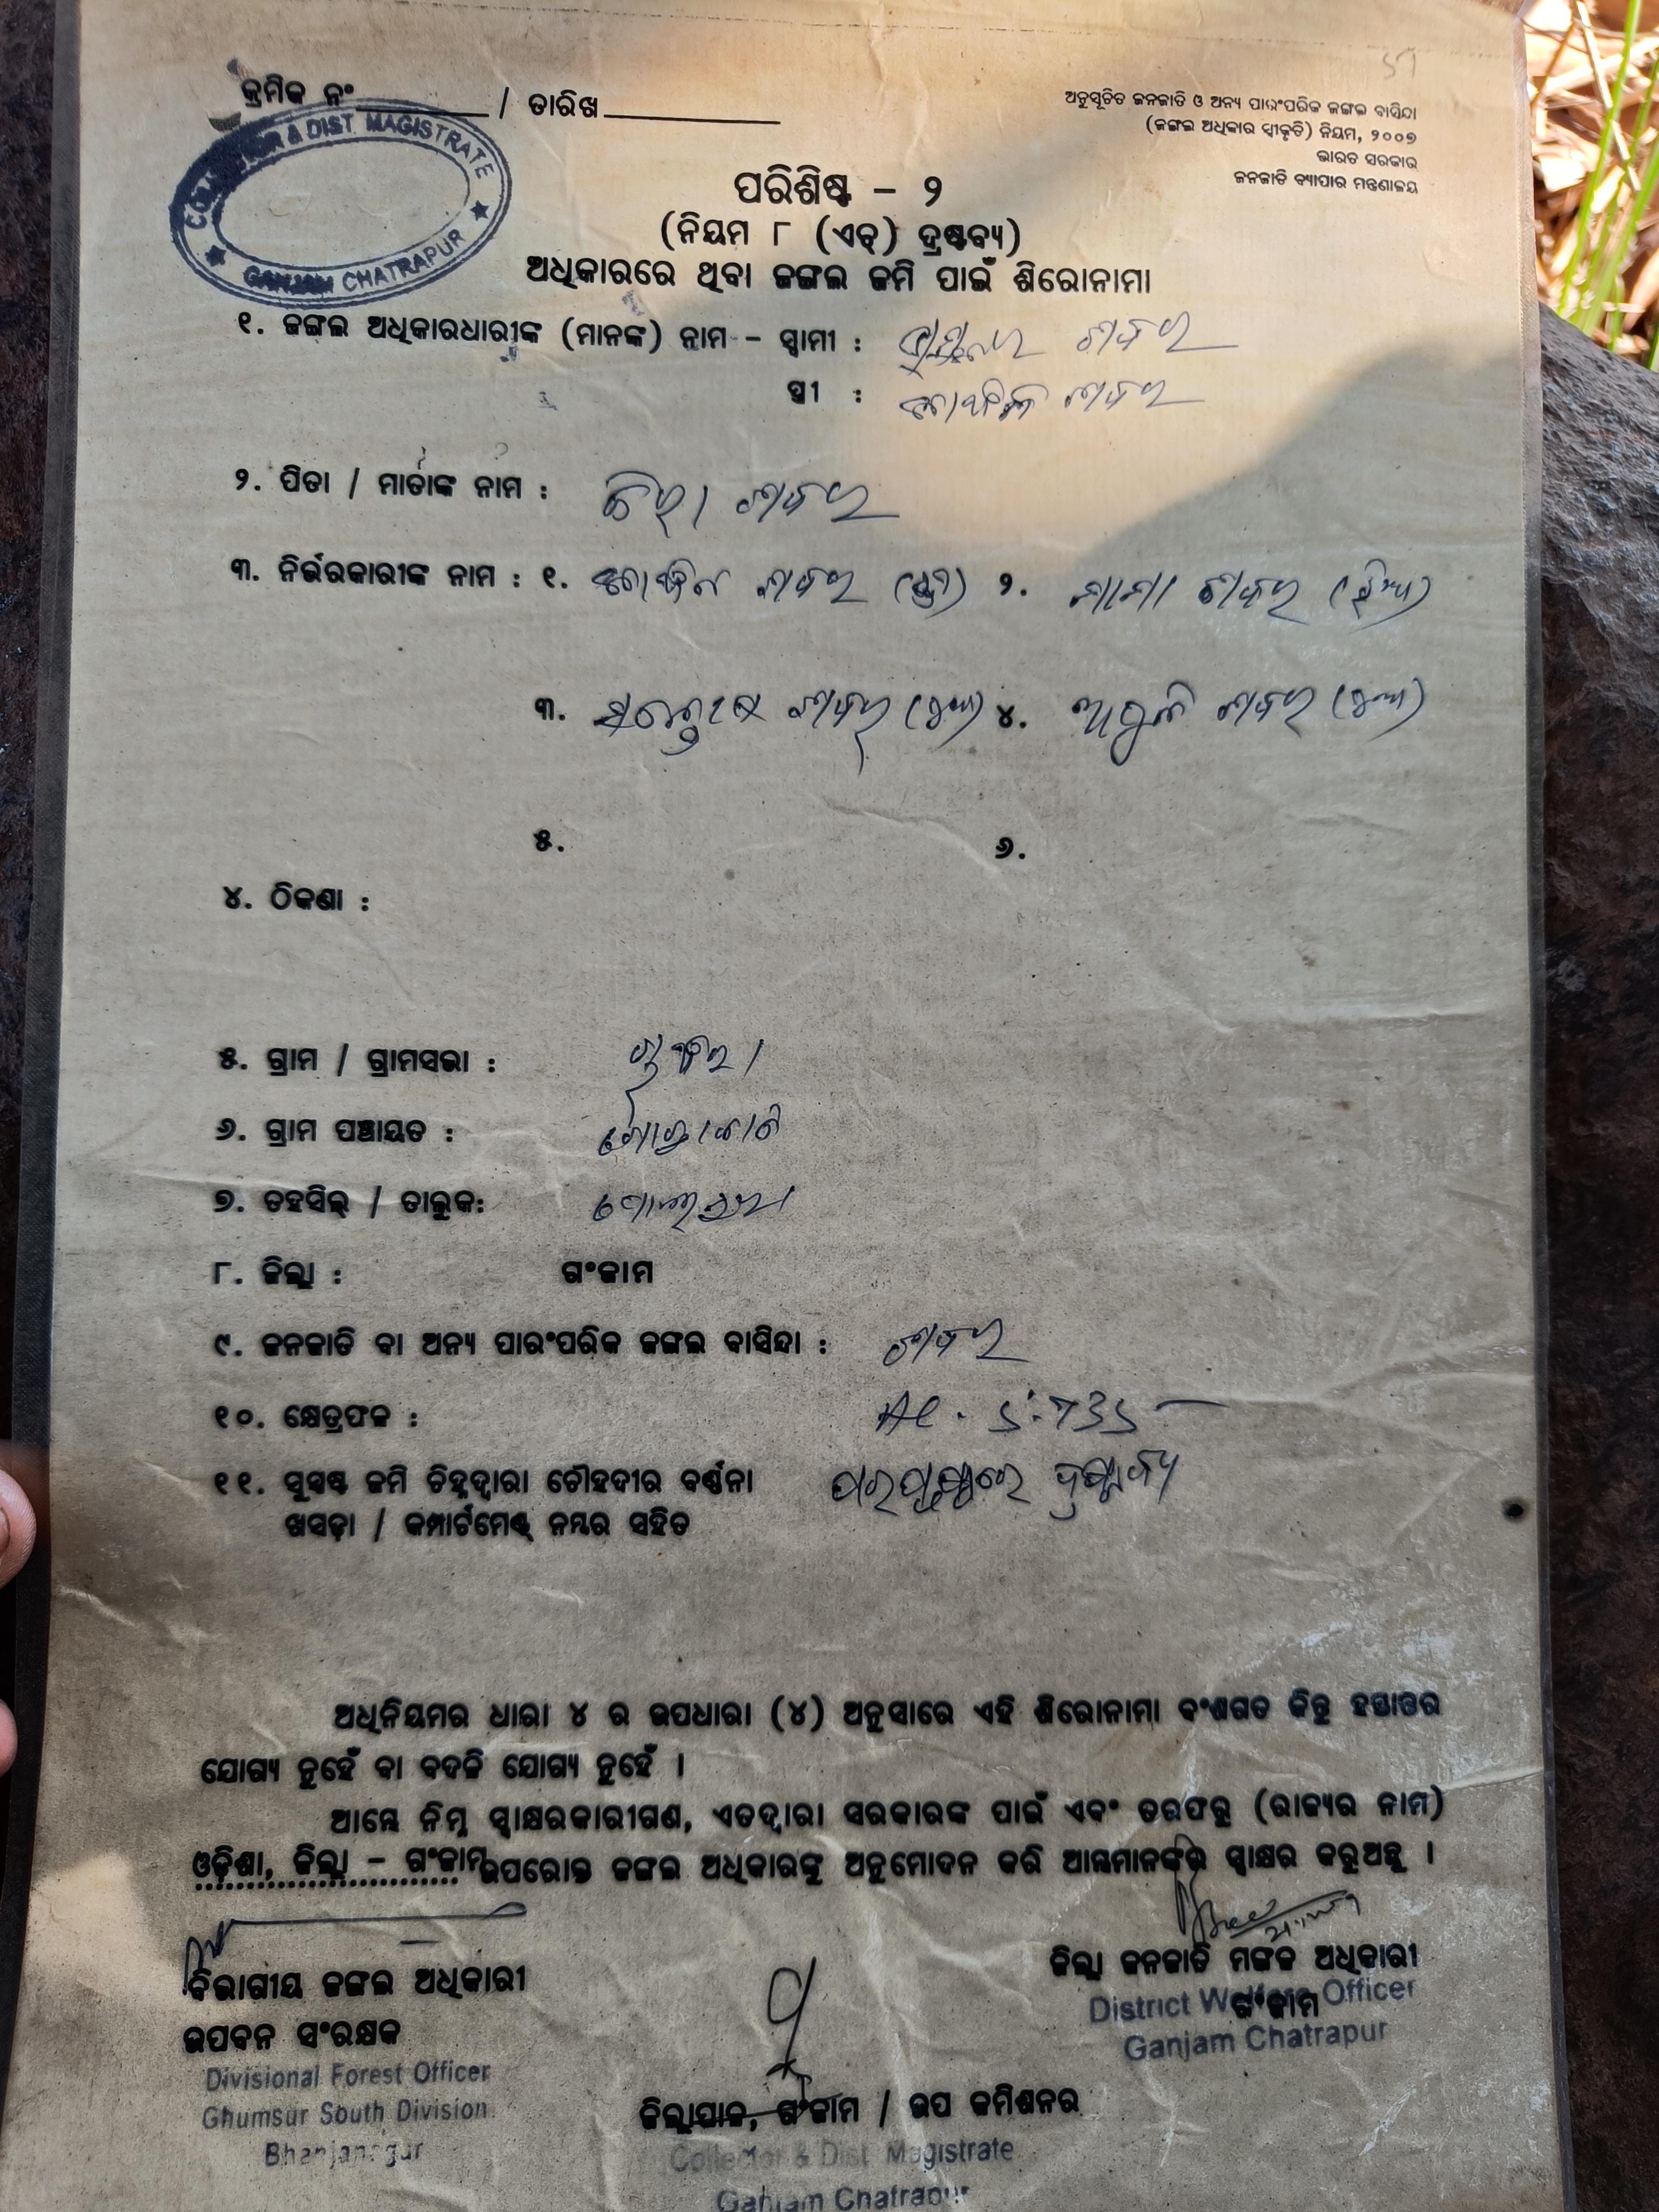 କ୍ରମିକ ନଂ / ତାରିଖ
COLLECTOR & DIST MAGISTRATE
GANJAM CHATRAPUR
ଅନୁସୂଚିତ ଜନଜାତି ଓ ଅନ୍ୟ ପାରଂପରିକ ଜଙ୍ଗଲ ବାସିନ୍ଦା
(ଜଙ୍ଗଲ ଅଧିକାର ସ୍ୱୀକୃତି) ନିୟମ, ୨୦୦୭
ଭାରତ ସରକାର
ଜନଜାତି ବ୍ୟାପାର ମନ୍ତ୍ରଣାଳୟ
ପରିଶିଷ୍ଟ – ୨
(ନିୟମ ୮ (ଏଚ୍) ଦ୍ରଷ୍ଟବ୍ୟ)
ଅଧିକାରରେ ଥିବା ଜଙ୍ଗଲ ଜମି ପାଇଁ ଶିରୋନାମା
୧. ଜଙ୍ଗଲ ଅଧିକାରଧାରୀଙ୍କ (ମାନଙ୍କ) ନାମ – ସ୍ୱାମୀ : ଶବର
ସ୍ତ୍ରୀ : ଶବର
୨. ପିତା / ମାତାଙ୍କ ନାମ : ଶବର
୩. ନିର୍ଭରକାରୀଙ୍କ ନାମ : ୧. ଶବର ୨. ଶବର (ଝିଅ)
୩. ଶବର (ଝିଅ) ୪. ଶବର (ଝିଅ)
୫. ୬.
୪. ଠିକଣା :
୫. ଗ୍ରାମ / ଗ୍ରାମସଭା :
୬. ଗ୍ରାମ ପଞ୍ଚାୟତ :
୭. ତହସିଲ୍ / ତାଲୁକ:
୮. ଜିଲ୍ଲା : ଗଂଜାମ
୯. ଜନଜାତି ବା ଅନ୍ୟ ପାରଂପରିକ ଜଙ୍ଗଲ ବାସିନ୍ଦା : ଶବର
୧୦. କ୍ଷେତ୍ରଫଳ :
୧୧. ସୁସ୍ପଷ୍ଟ ଜମି ଚିହ୍ନଦ୍ୱାରା ଚୌହଦୀର ବର୍ଣ୍ଣନା ପରପୃଷ୍ଠାରେ ଦ୍ରଷ୍ଟବ୍ୟ
ଖସଡ଼ା / କମ୍ପାର୍ଟମେଣ୍ଟ୍ ନମ୍ଭର ସହିତ
ଅଧିନିୟମର ଧାରା ୪ ର ଉପଧାରା (୪) ଅନୁସାରେ ଏହି ଶିରୋନାମା ବଂଶଗତ କିନ୍ତୁ ହସ୍ତାନ୍ତର
ଯୋଗ୍ୟ ନୁହେଁ ବା ବଦଳି ଯୋଗ୍ୟ ନୁହେଁ ।
ଆମ୍ଭେ ନିମ୍ନ ସ୍ୱାକ୍ଷରକାରୀଗଣ, ଏତଦ୍ୱାରା ସରକାରଙ୍କ ପାଇଁ ଏବଂ ତରଫରୁ (ରାଜ୍ୟର ନାମ)
ଓଡ଼ିଶା, ଜିଲ୍ଲା – ଗଂଜାମ ଉପରୋକ୍ତ ଜଙ୍ଗଲ ଅଧିକାରଙ୍କୁ ଅନୁମୋଦନ କରି ଆମ୍ଭମାନଙ୍କର ସ୍ୱାକ୍ଷର କରୁଅଛୁ ।
ବିଭାଗୀୟ ଜଙ୍ଗଲ ଅଧିକାରୀ
ଉପବନ ସଂରକ୍ଷକ
Divisional Forest Officer
Ghumsur South Division
Bhanjanagar
ଜିଲ୍ଲା ଜନଜାତି ମଙ୍ଗଳ ଅଧିକାରୀ
ଗଂଜାମ
District Welfare Officer
Ganjam Chatrapur
ଜିଲ୍ଲାପାଳ, ଗଂଜାମ / ଉପ କମିଶନର
Collector & Dist Magistrate
Ganjam Chatrapur